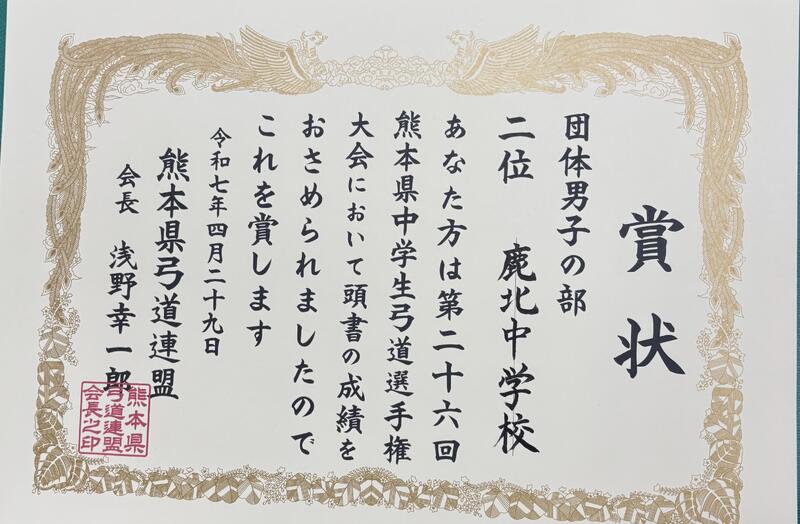 賞状
団体男子の部
二位 鹿北中学校
あなた方は第二十六回
熊本県中学生弓道選手権
大会において頭書の成績を
おさめられましたので
これを賞します
令和七年四月二十九日
熊本県弓道連盟
会長 浅野幸一郎
熊本県
弓道連盟
会長之印